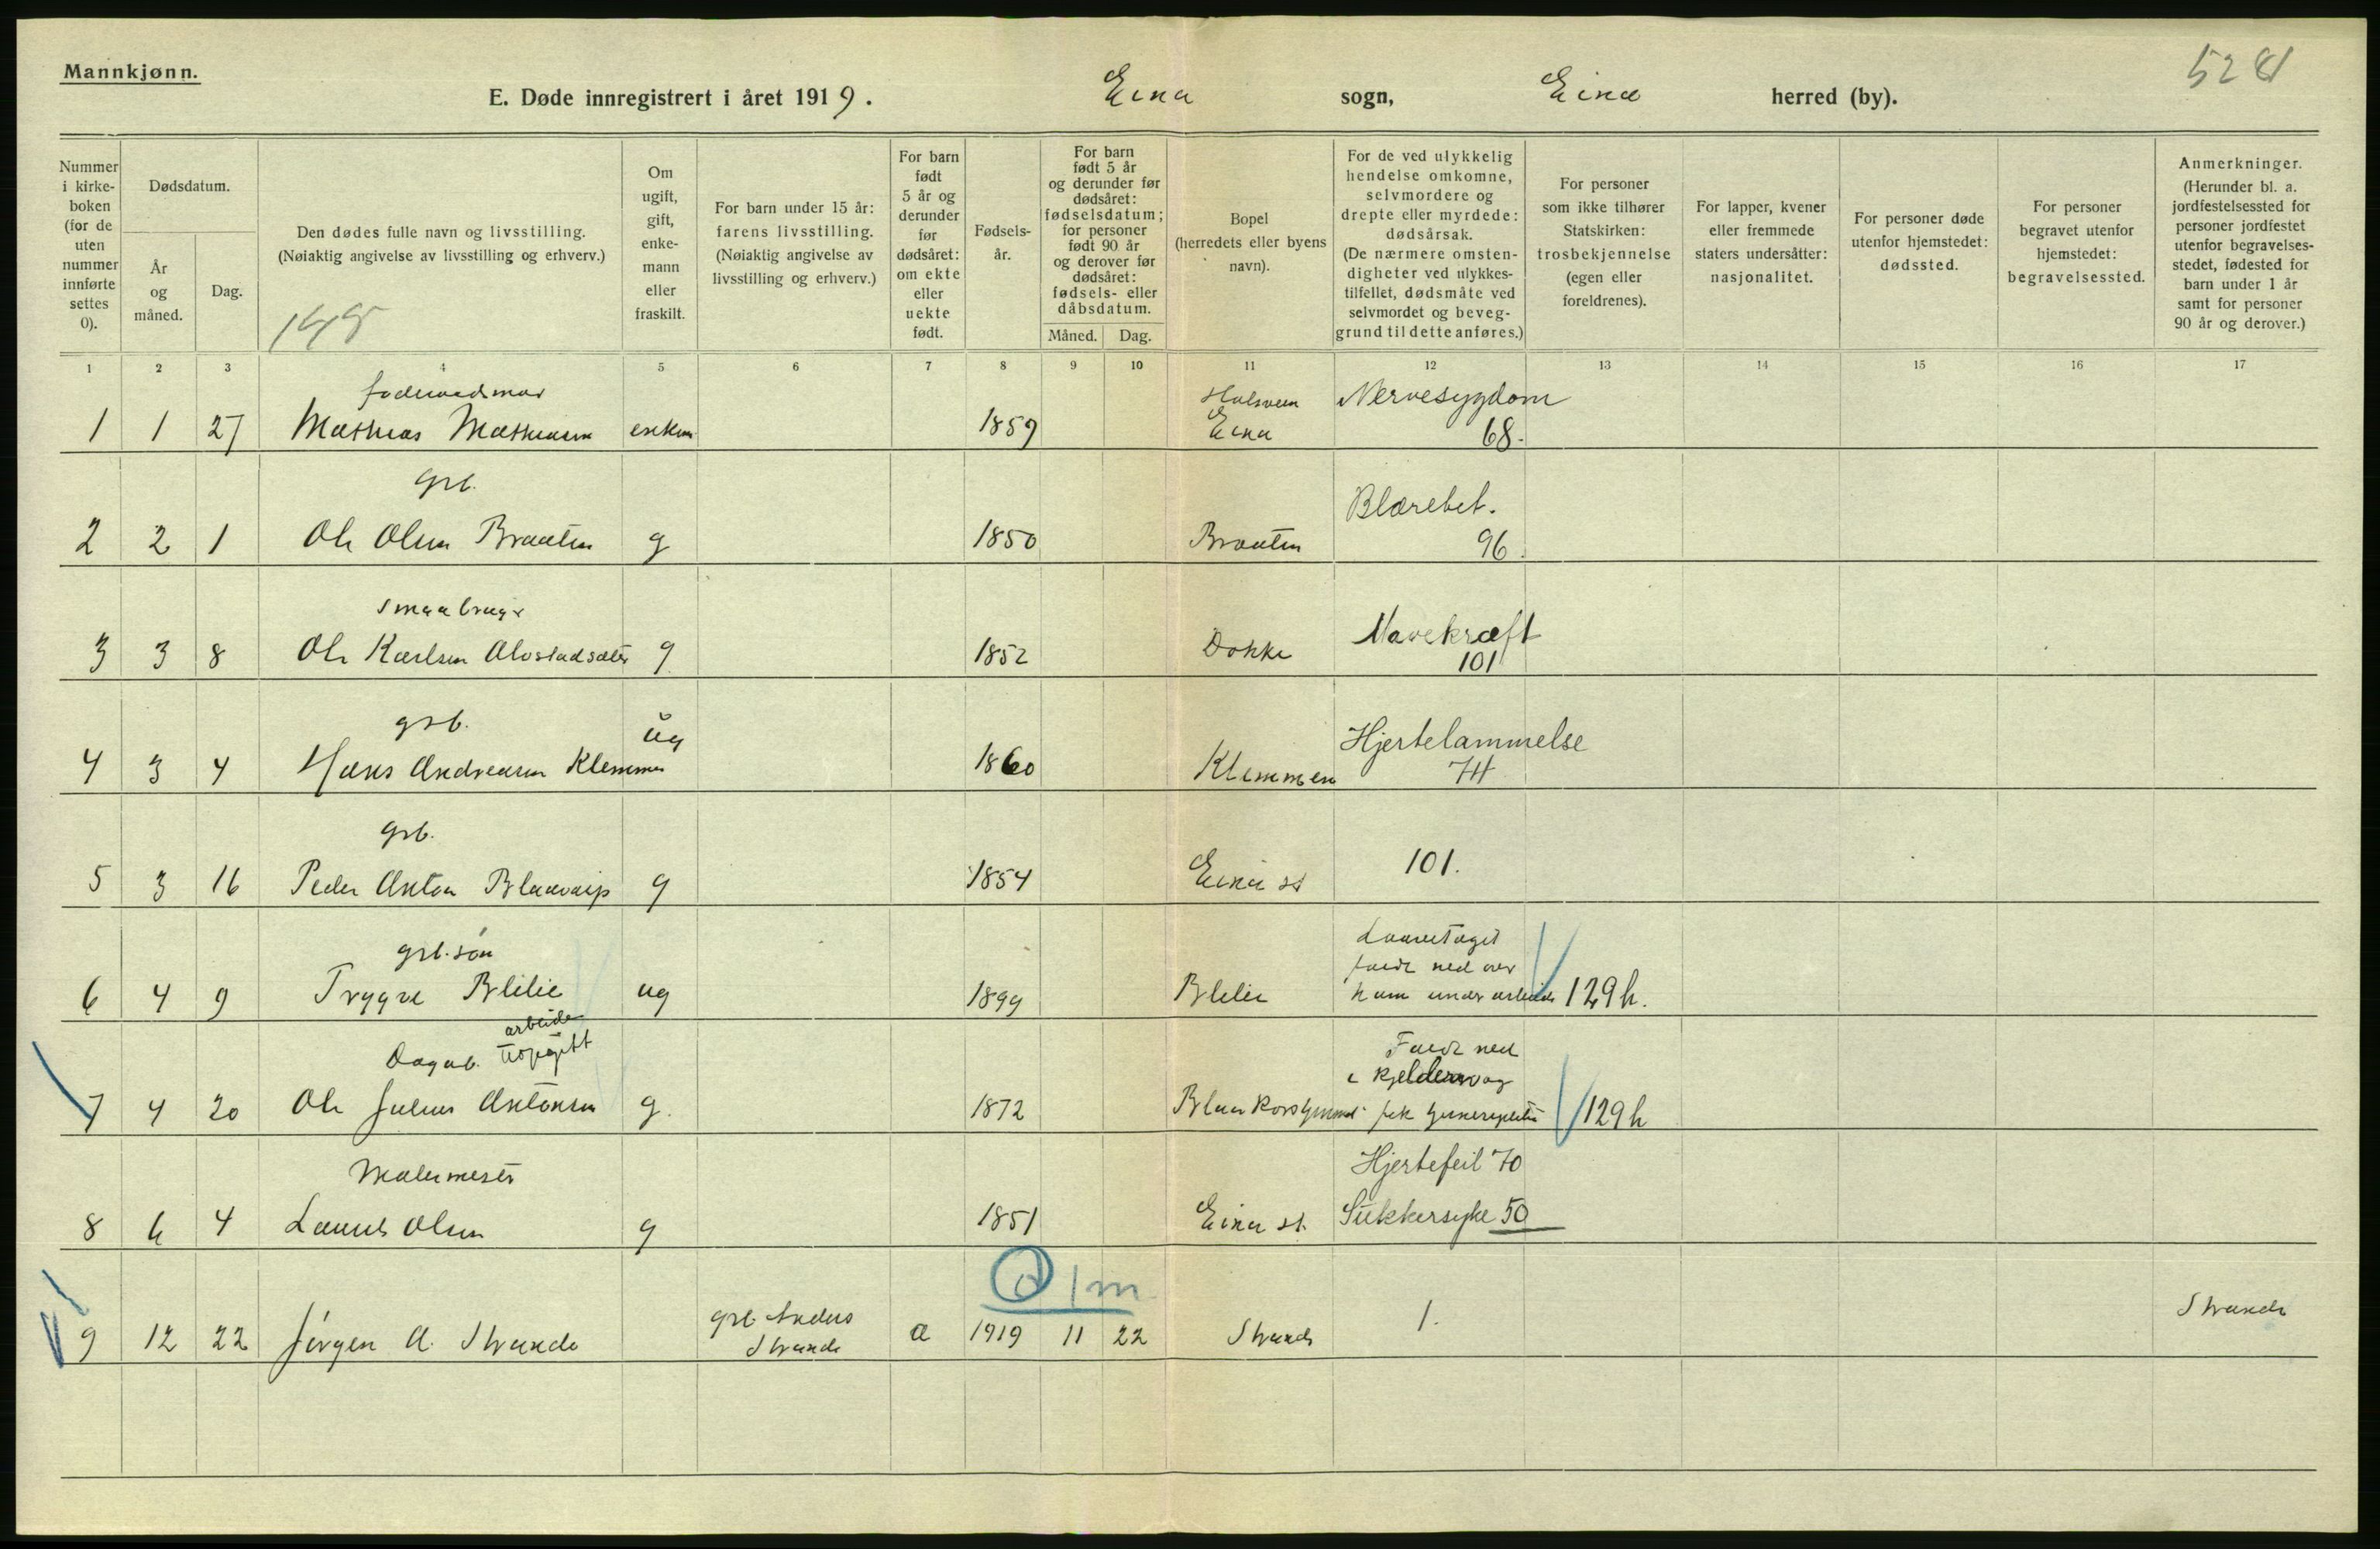 Mannkjønn.
5281
E. Døde innregistrert i året 1919. Eina sogn, Eina herred (by).
Nummer i kirke-boken (for de uten nummer innførte settes 0).
Dødsdatum.
År og måned.
Dag.
Den dødes fulle navn og livsstilling.
(Nøiaktig angivelse av livsstilling og erhverv.)
Om ugift, gift, enke-mann eller fraskilt.
For barn under 15 år: farens livsstilling.
(Nøiaktig angivelse av livsstilling og erhverv.)
For barn født 5 år og derunder før dødsåret: om ekte eller uekte født.
Fødsels-år.
For barn født 5 år og derunder før dødsåret: fødselsdatum; for personer født 90 år og derover før dødsåret: fødsels- eller dåbsdatum.
Måned. Dag.
Bopel (herredets eller byens navn).
For de ved ulykkelig hendelse omkomne, selvmordere og drepte eller myrdede: dødsårsak.
(De nærmere omsten-digheter ved ulykkes-tilfellet, dødsmåte ved selvmordet og beveg-grund til dette anføres.)
For personer som ikke tilhører Statskirken: trosbekjennelse (egen eller foreldrenes).
For lapper, kvener eller fremmede staters undersåtter: nasjonalitet.
For personer døde utenfor hjemstedet: dødssted.
For personer begravet utenfor hjemstedet: begravelsessted.
Anmerkninger.
(Herunder bl. a. jordfestelsessted for personer jordfestet utenfor begravelses-stedet, fødested for barn under 1 år samt for personer 90 år og derover.)
1 2 3 4 5 6 7 8 9 10 11 12 13 14 15 16 17
Nervesygdom
1 1 27 Mathias Mathiasen enkem 1859 Eina 68.
Grb.
Blærebet.
2 2 1 Ole Olsen Braaten g 1850 Braaten 96.
Smaabruger
Mavekræft
3 3 8 Ole Karlsen g 1852 Dokke 101
grb. ug Hjertelammelse
4 3 4 Hans Andreasen Klemmen 1860 Klemmen 74
Grb.
5 3 16 Peder Anton Blaavarp g 1854 Eina st 101.
grb. søn
ned over
6 4 9 Trygve Blilie ug 1899 Blilie ham under arbeide 129h.
arbeide
Dagab.
Faldt ned
i kjelder og
7 4 20 Ole Julius Antonsen g. 1872 fik 129h
Malermester Hjertefeil 70
8 6 4 Laurits Olsen g 1851 Eina st. Sukkersyke 50
1 m
grb. Anders Strande
9 12 22 Jørgen A. Strande Strande æ 1919 11 22 Strande 1.